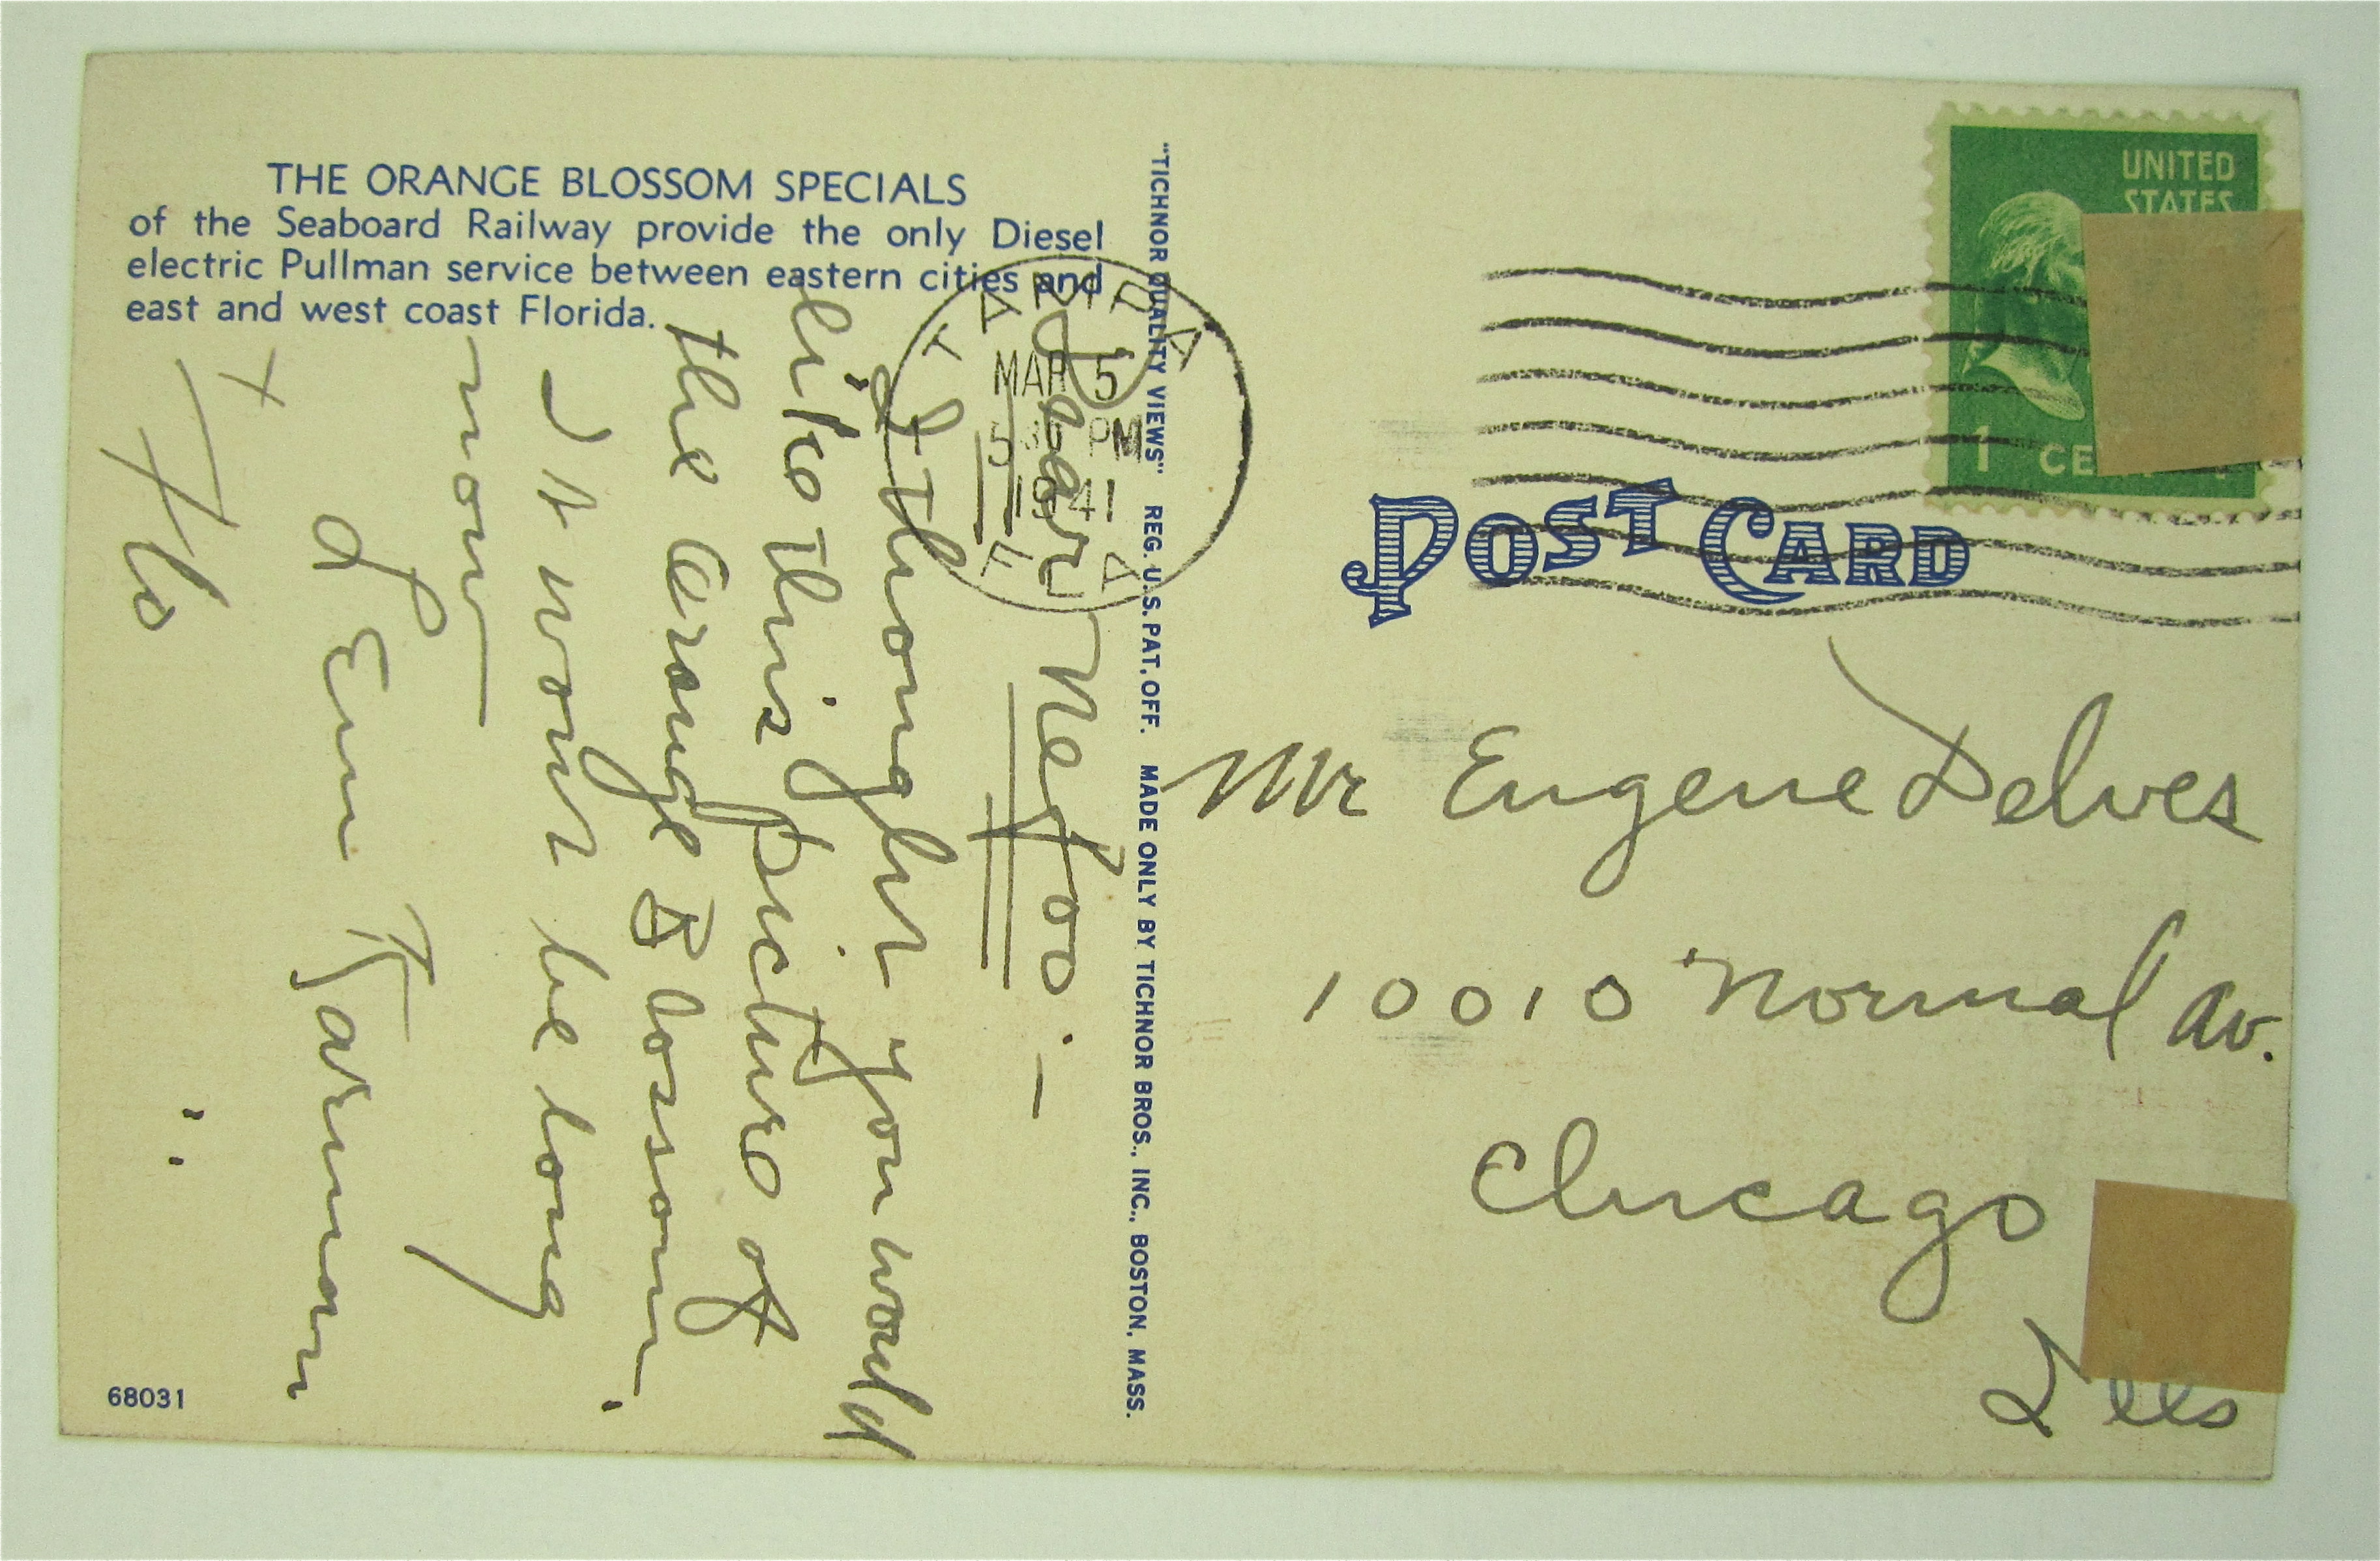 THE ORANGE BLOSSOM SPECIALS
of the Seaboard Railway provide the only Diesel
electric Pullman service between eastern cities and
east and west coast Florida.
Dear
I thought you would
like this picture of
the Orange Blossom.
It wont be long
now
Em
+ Flo
68031
"TICHNOR QUALITY VIEWS" REG. U.S. PAT. OFF. MADE ONLY BY TICHNOR BROS., INC., BOSTON, MASS.
TAMPA
MAR 5
530 PM
1941
FLA
UNITED
STATES
1 CE
POST CARD
Mr Eugene Delves
10010 Normal Av.
Chicago
Ills